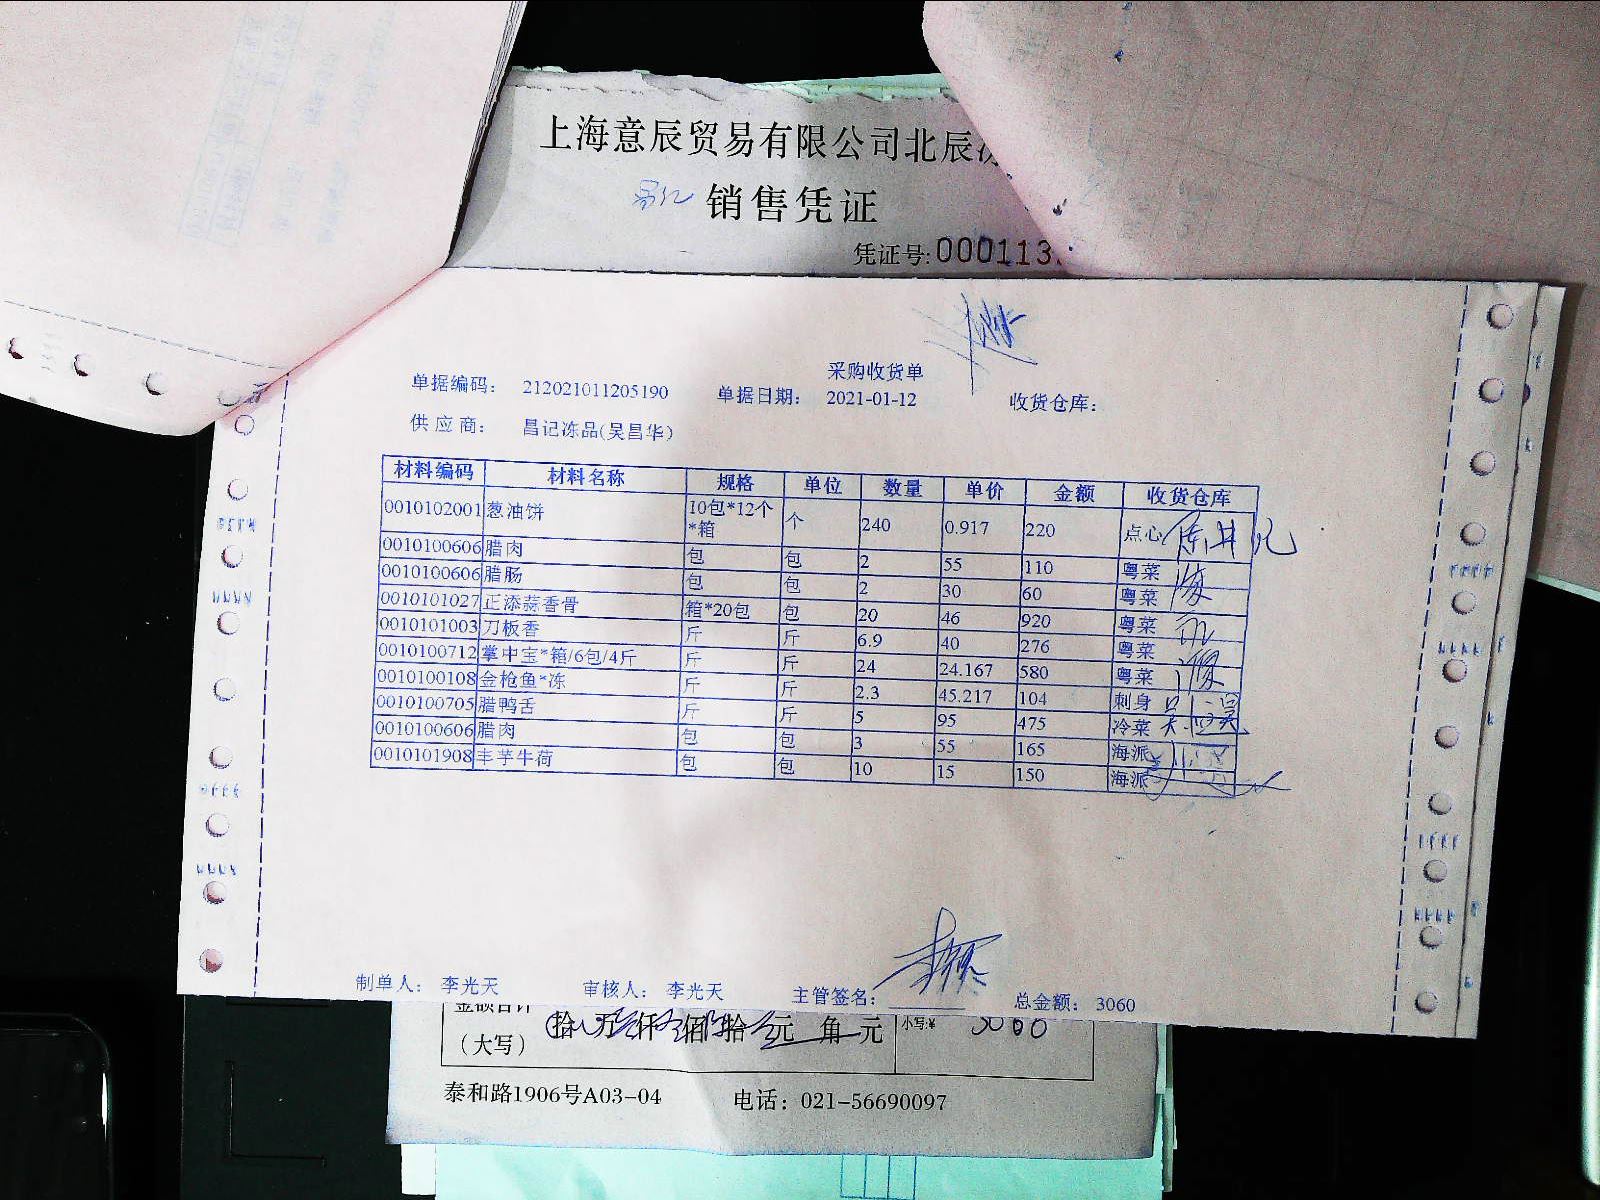 上海意辰贸易有限公司北辰
昌记 销售凭证
凭证号:000113
采购收货单
单据编码: 212021011205190 单据日期: 2021-01-12 收货仓库:
供应商: 昌记冻品(吴昌华)
材料编码 材料名称 规格 单位 数量 单价 金额 收货仓库
0010102001 葱油饼 10包*12个*箱 个 240 0.917 220 点心
0010100606 腊肉 包 包 2 55 110 粤菜
0010100606 腊肠 包 包 2 30 60 粤菜
0010101027 正添蒜香骨 箱*20包 包 20 46 920 粤菜
0010101003 刀板香 斤 斤 6.9 40 276 粤菜
0010100712 掌中宝*箱/6包/4斤 斤 斤 24 24.167 580 粤菜
0010100108 金枪鱼*冻 斤 斤 2.3 45.217 104 刺身
0010100705 腊鸭舌 斤 斤 5 95 475 冷菜
0010100606 腊肉 包 包 3 55 165 海派
0010101908 丰芋牛荷 包 包 10 15 150 海派
制单人: 李光天 审核人: 李光天 主管签名: 总金额: 3060
金额合计 拾 万 仟 佰 拾 元 角 元 小写:¥ 3060
(大写)
泰和路1906号A03-04 电话: 021-56690097